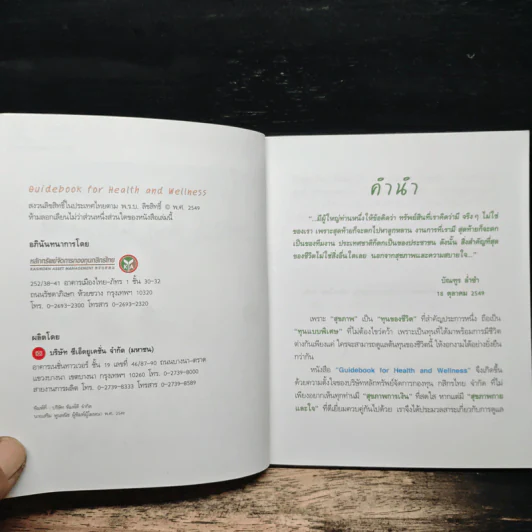 Guidebook for Health and Wellness
สงวนลิขสิทธิ์ในประเทศไทยตาม พ.ร.บ. ลิขสิทธิ์ © พ.ศ. 2549
ห้ามลอกเลียนไม่ว่าส่วนหนึ่งส่วนใดของหนังสือเล่มนี้
อภินันทนาการโดย
หลักทรัพย์จัดการกองทุนกสิกรไทย
KASIKORN ASSET MANAGEMENT
252/38-41 อาคารเมืองไทย-ภัทร 1 ชั้น 30-32
ถนนรัชดาภิเษก ห้วยขวาง กรุงเทพฯ 10320
โทร 0-2693-2300 โทรสาร 0-2693-2320
ผลิตโดย
บริษัท ซีเอ็ดยูเคชั่น จำกัด (มหาชน)
อาคารเนชั่นทาวเวอร์ ชั้น 19 เลขที่ 46/87-90 ถนนบางนา-ตราด
แขวงบางนา เขตบางนา กรุงเทพฯ 10260 โทร. 0-2739-8000
สายงานการผลิต โทร. 0-2739-8333 โทรสาร 0-2739-8589
พิมพ์ที่ : บริษัท พิมพ์ดี จำกัด
พ.ศ. 2549
คำนำ
"...มีผู้ใหญ่ท่านหนึ่งให้ข้อคิดว่า ทรัพย์สินที่เราคิดว่ามี จริงๆ ไม่ใช่
ของเรา เพราะสุดท้ายก็จะตกไปหาลูกหลาน งานการที่เรามี สุดท้ายก็จะตก
เป็นของทีมงาน ประเทศชาติก็ตกเป็นของประชาชน ดังนั้น สิ่งสำคัญที่สุด
ของชีวิตไม่ใช่สิ่งอื่นใดเลย นอกจากสุขภาพและความสบายใจ..."
บัณฑูร ล่ำซำ
16 ตุลาคม 2549
เพราะ "สุขภาพ" เป็น "ทุนของชีวิต" ที่สำคัญประการหนึ่ง ถือเป็น
"ทุนแบบพิเศษ" ที่ไม่ต้องไขว่คว้า เพราะเป็นทุนที่ได้มาพร้อมการมีชีวิต
ต่างกันเพียงแค่ ใครจะสามารถดูแลต้นทุนของชีวิตนี้ ให้งอกงามได้อย่างยั่งยืน
กว่ากัน
หนังสือ "Guidebook for Health and Wellness" จึงเกิดขึ้น
ด้วยความตั้งใจของบริษัทหลักทรัพย์จัดการกองทุน กสิกรไทย จำกัด ที่ไม่
เพียงอยากเห็นทุกท่านมี "สุขภาพการเงิน" ที่สดใส หากแต่มี "สุขภาพกาย
และใจ" ที่ดีเยี่ยมควบคู่กันไปด้วย เราจึงได้ประมวลสาระเกี่ยวกับการดูแล